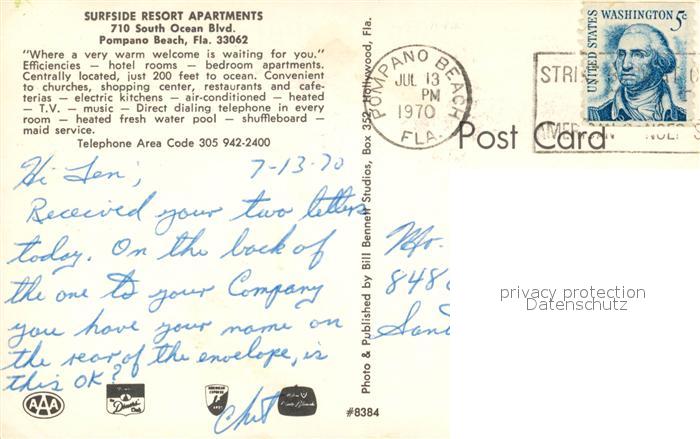 SURFSIDE RESORT APARTMENTS
710 South Ocean Blvd.
Pompano Beach, Fla. 33062
"Where a very warm welcome is waiting for you."
Efficiencies — hotel rooms — bedroom apartments.
Centrally located, just 200 feet to ocean. Convenient
to churches, shopping center, restaurants and cafe-
terias — electric kitchens — air-conditioned — heated
— T.V. — music — Direct dialing telephone in every
room — heated fresh water pool — shuffleboard —
maid service.
Telephone Area Code 305 942-2400
Hi Len; 7-13-70
Received your two letters
today. On the back of
the one to your Company
you have your name on
the rear of the envelope, is
this OK?
Chet
AAA
Diners Club
AMERICAN EXPRESS
#8384
Photo & Published by Bill Bennett Studios, Box 352, Hollywood, Fla.
POMPANO BEACH
JUL 13
PM
1970
FLA.
STRI
AMERICAN
UNITED STATES
WASHINGTON 5¢
Post Card
Mr.
848
privacy protection
Datenschutz